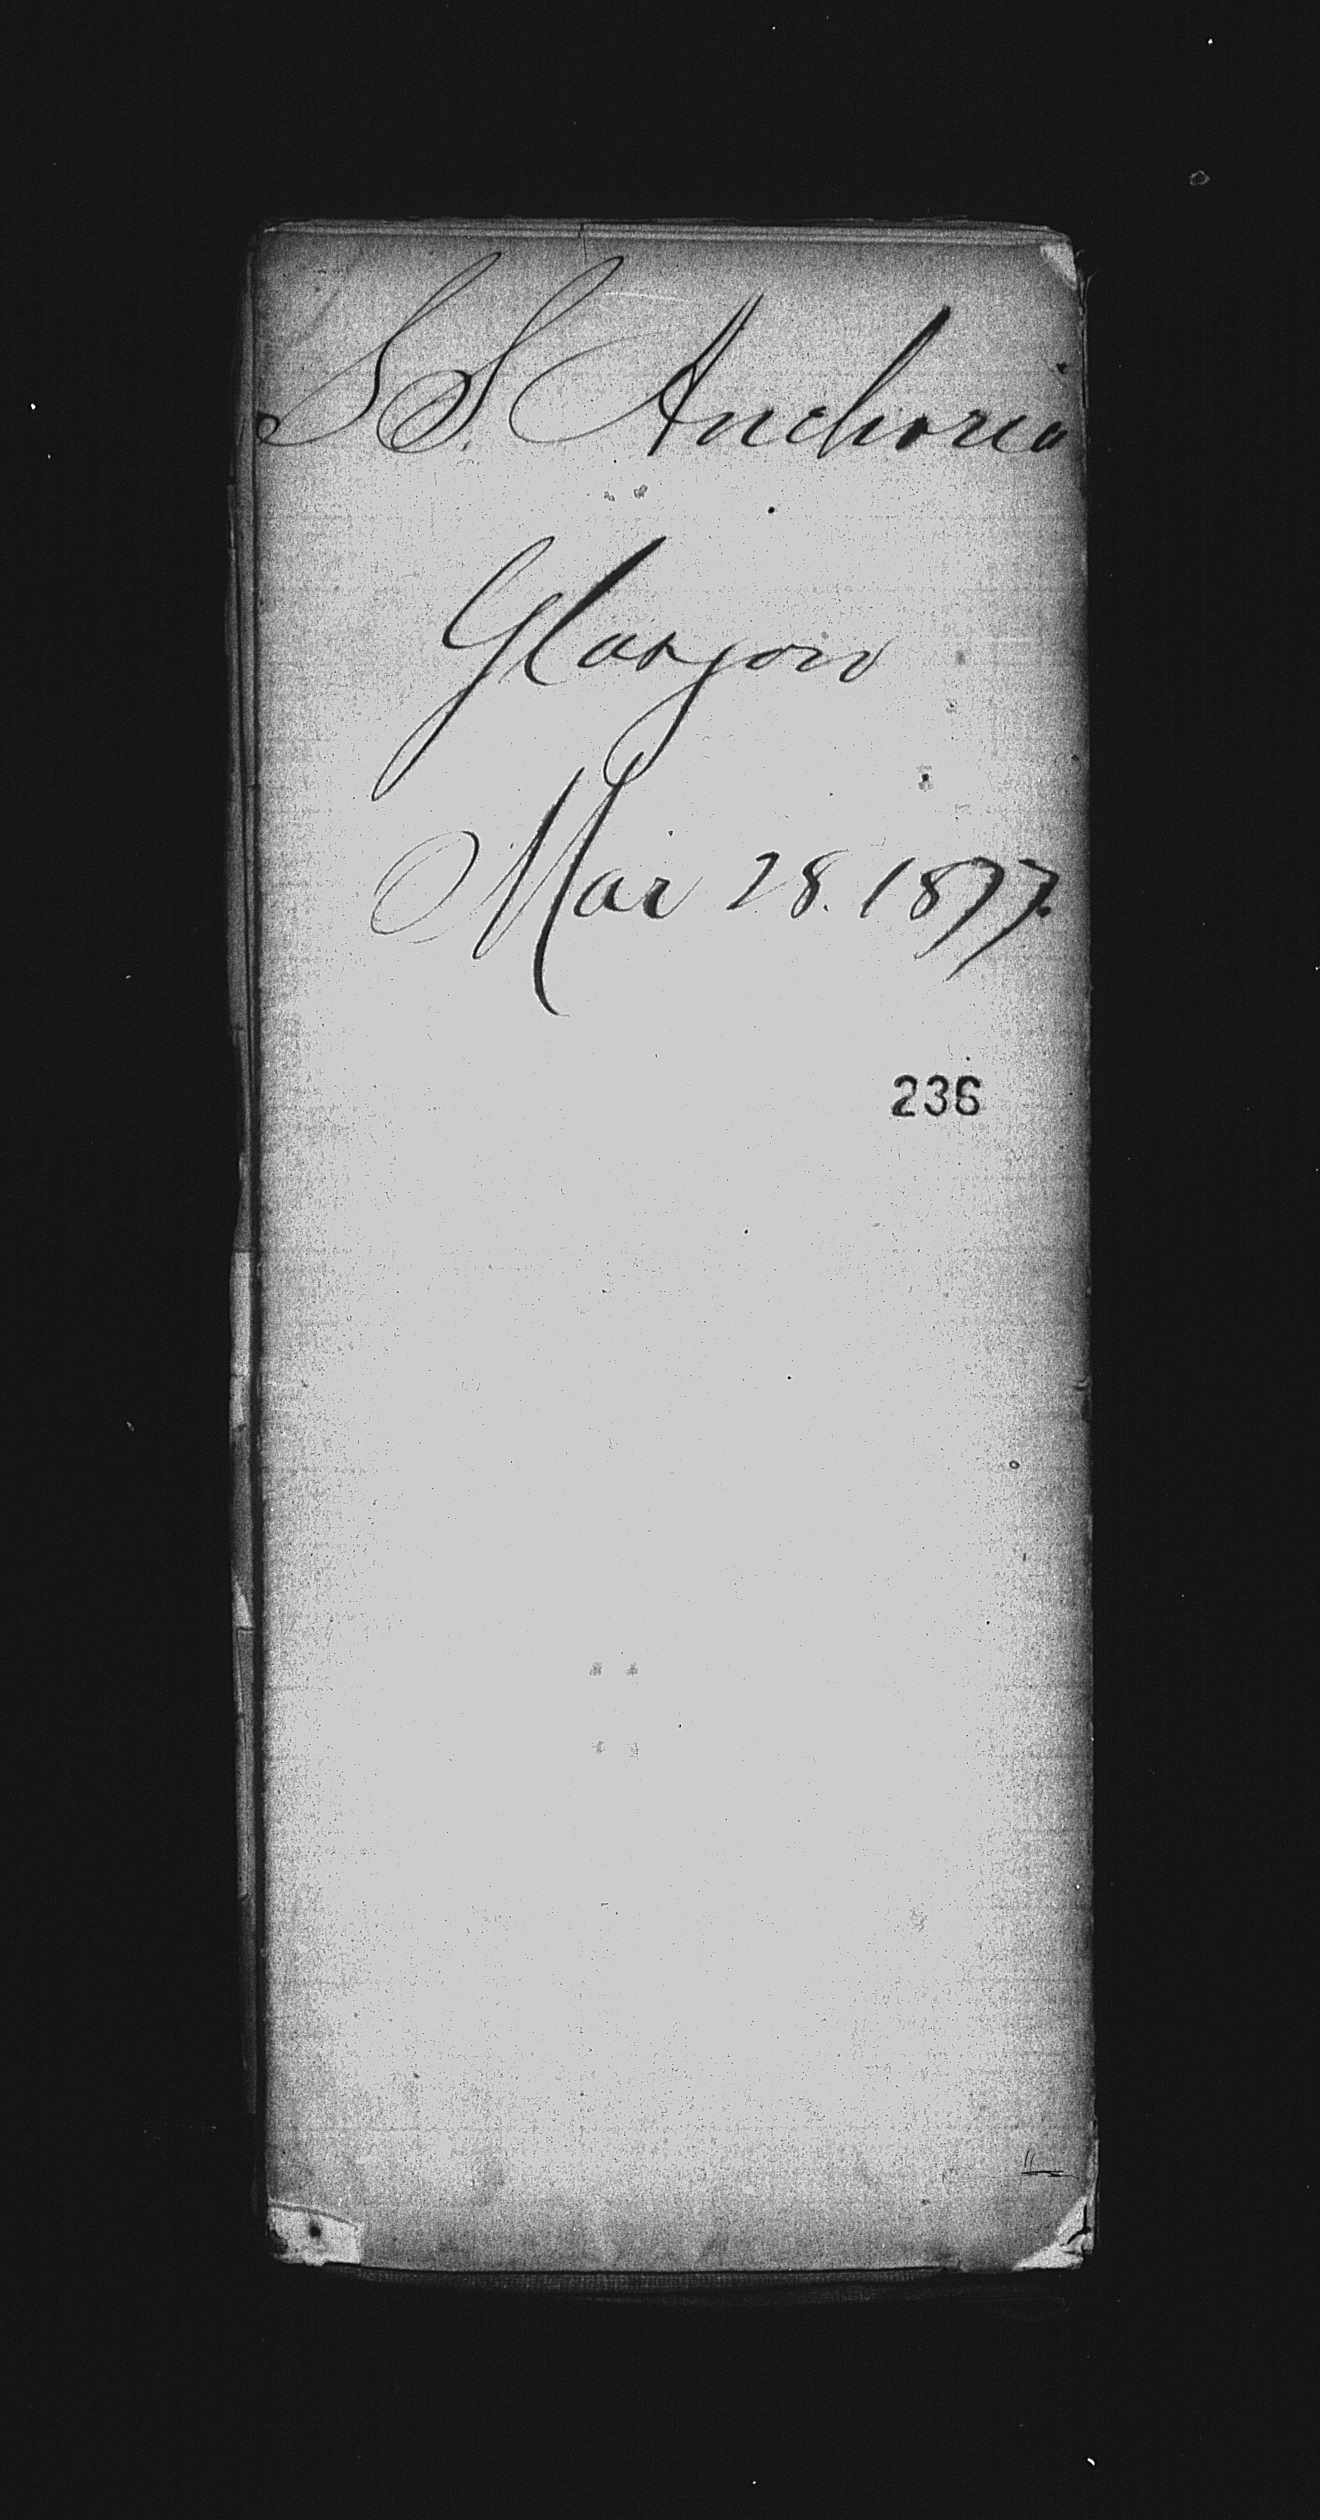 SS Anchoria
Glasgow
Mar 28. 1877.
236